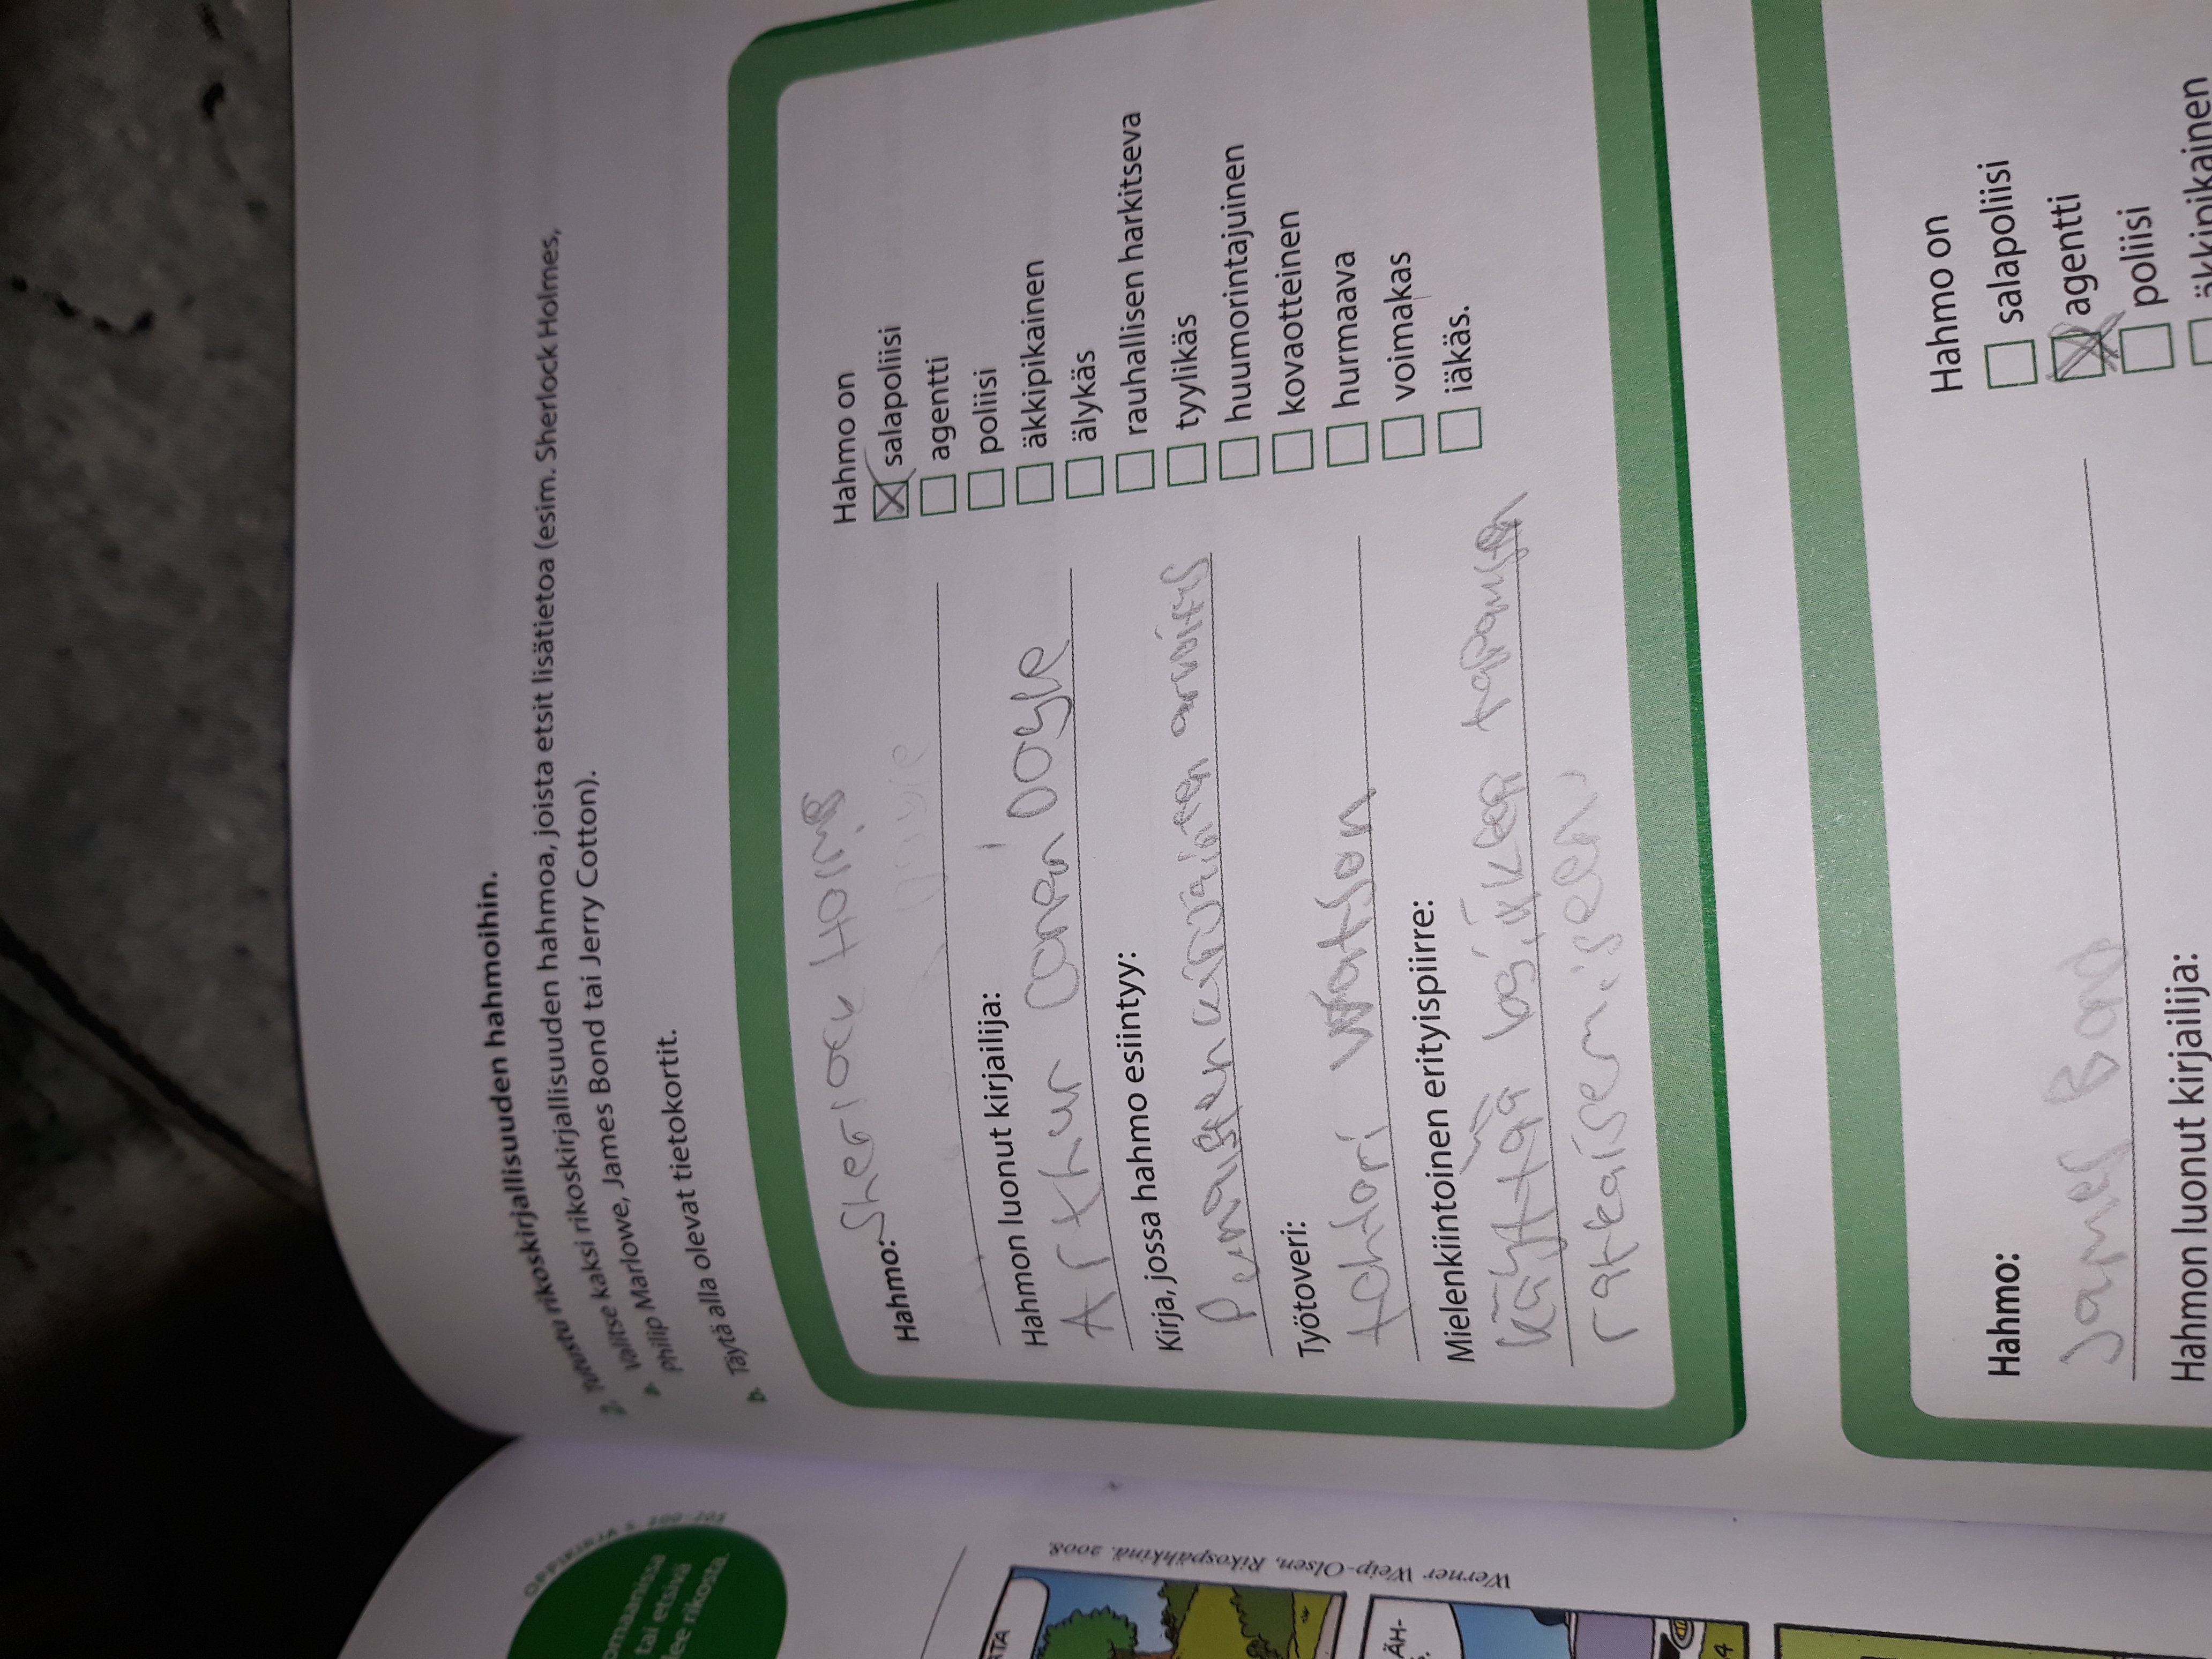 2. Tutustu rikoskirjallisuuden hahmoihin.
a. Valitse kaksi rikoskirjallisuuden hahmoa, joista etsit lisätietoa (esim. Sherlock Holmes,
Philip Marlowe, James Bond tai Jerry Cotton).
b. Täytä alla olevat tietokortit.
Hahmo: Sherlock
Hahmon luonut kirjailija:
Arthur Conan Doyle
Kirja, jossa hahmo esiintyy:
Punaisen kirjaimen arvoitus
Työtoveri:
tohtori Watson
Mielenkiintoinen erityispiirre:
käyttää logiikkaa
ratkaisemiseen
Hahmo on
salapoliisi
agentti
poliisi
äkkipikainen
älykäs
rauhallisen harkitseva
tyylikäs
huumorintajuinen
kovaotteinen
hurmaava
voimakas
iäkäs.
Hahmo:
James Bond
Hahmon luonut kirjailija:
Hahmo on
salapoliisi
agentti
poliisi
äkkipikainen
OPPIKIRJA S.
omaanissa
tai etsivä
lee rikosta.
Werner Weip-Olsen, Rikospähkinä. 2008.
TA
ÄH-
4